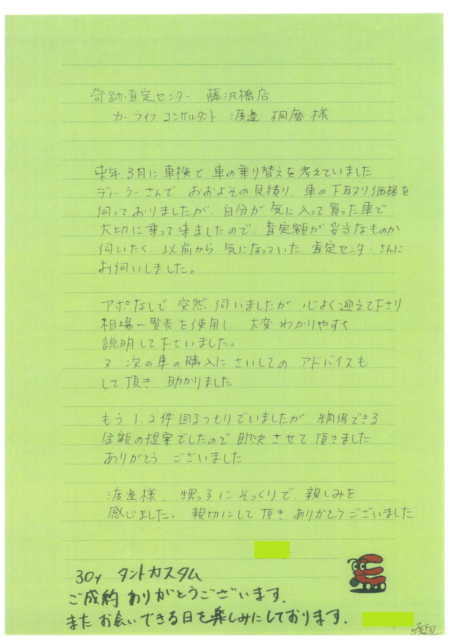 奇跡の査定センター 藤沢橋店
カーライフコンサルタント 渡邉 桐磨 様
来年3月に車検で 車の乗り替えを考えていました
ディーラーさんで おおよその見積り、車の下取り価格を
伺っておりましたが、自分が気に入って買った車で
大切に乗って来ましたので、査定額が妥当なものか
伺いたく 以前から 気になっていた 査定センターさんに
お伺いしました。
アポなしで 突然 伺いましたが 心よく迎えて下さり
相場一覧表を使用し 大変 わかりやすく
説明して下さいました。
又 次の車の購入に さいしての アドバイスも
して頂き 助かりました
もう 1、2件 回るつもりでいましたが 納得できる
金額の提案でしたので 即決させて 頂きました
ありがとう ございました
渡邉様、甥っ子に そっくりで、親しみを
感じました。 親切にして 頂き ありがとうございました
30y タントカスタム
ご成約 ありがとうございます。
また お会いできる日を 楽しみにしております。